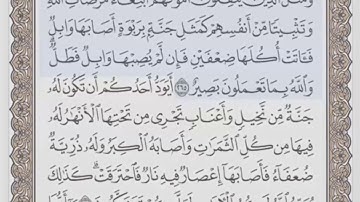 وَتَثْبِيتًا مِّنْ أَنفُسِهِمْ كَمَثَلِ جَنَّةٍۭ بِرَبْوَةٍ أَصَابَهَا وَابِلٌ
فَـَٔاتَتْ أُكُلَهَا ضِعْفَيْنِ فَإِن لَّمْ يُصِبْهَا وَابِلٌ فَطَلٌّ
وَٱللَّهُ بِمَا تَعْمَلُونَ بَصِيرٌ ٢٦٥ أَيَوَدُّ أَحَدُكُمْ أَن تَكُونَ لَهُۥ
جَنَّةٌ مِّن نَّخِيلٍ وَأَعْنَابٍ تَجْرِى مِن تَحْتِهَا ٱلْأَنْهَٰرُ لَهُۥ
فِيهَا مِن كُلِّ ٱلثَّمَرَٰتِ وَأَصَابَهُ ٱلْكِبَرُ وَلَهُۥ ذُرِّيَّةٌ
ضُعَفَآءُ فَأَصَابَهَآ إِعْصَارٌ فِيهِ نَارٌ فَٱحْتَرَقَتْ ۗ كَذَٰلِكَ